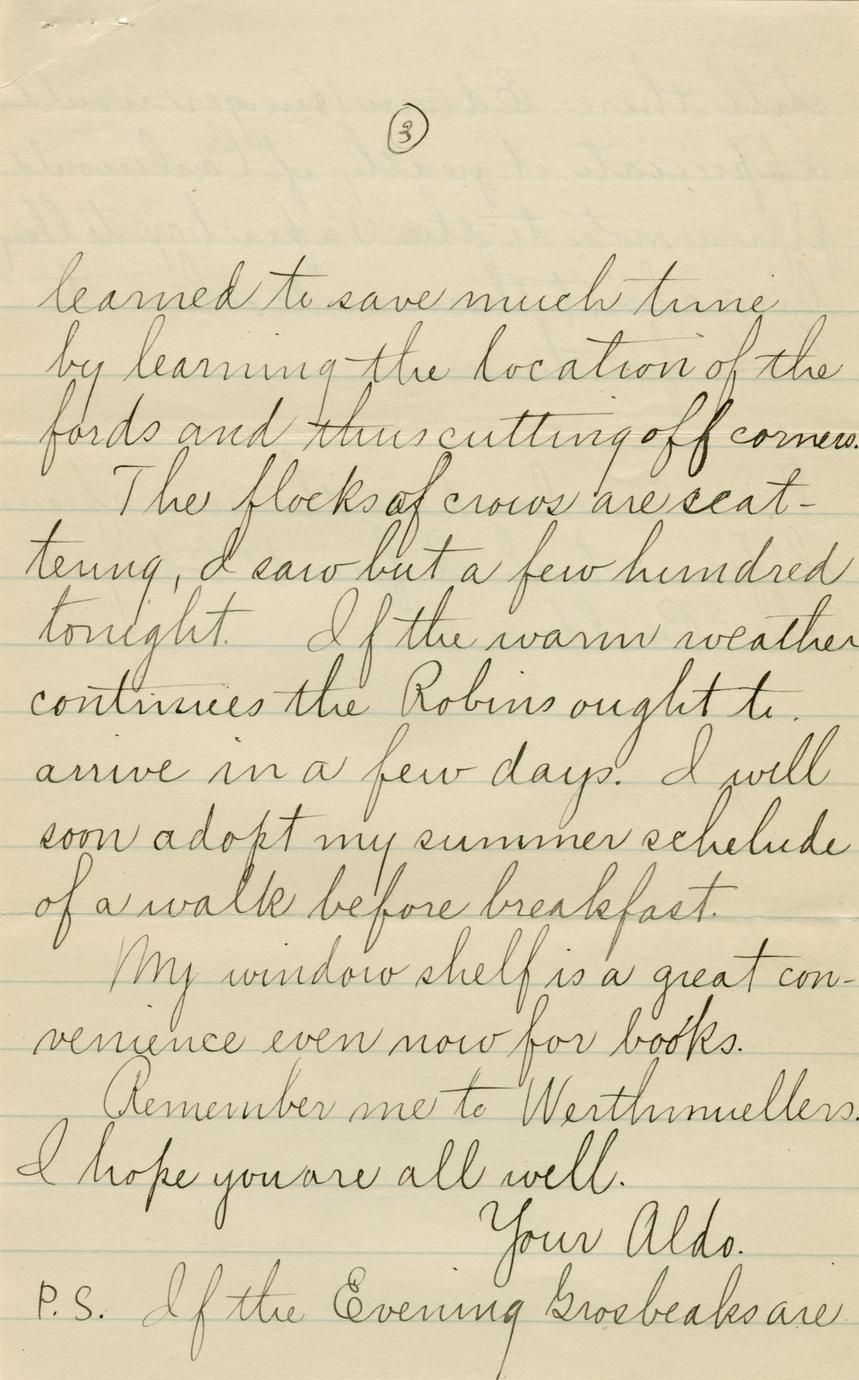 3
learned to save much time
by learning the location of the
fords and thus cutting off corners.
The flocks of crows are scat-
tering, I saw but a few hundred
tonight. If the warm weather
continues the Robins ought to
arrive in a few days. I will
soon adopt my summer schelude
of a walk before breakfast.
My window shelf is a great con-
venience even now for books.
Remember me to Werthmuellers.
I hope you are all well.
Your Aldo.
P.S. If the Evening Grosbeaks are